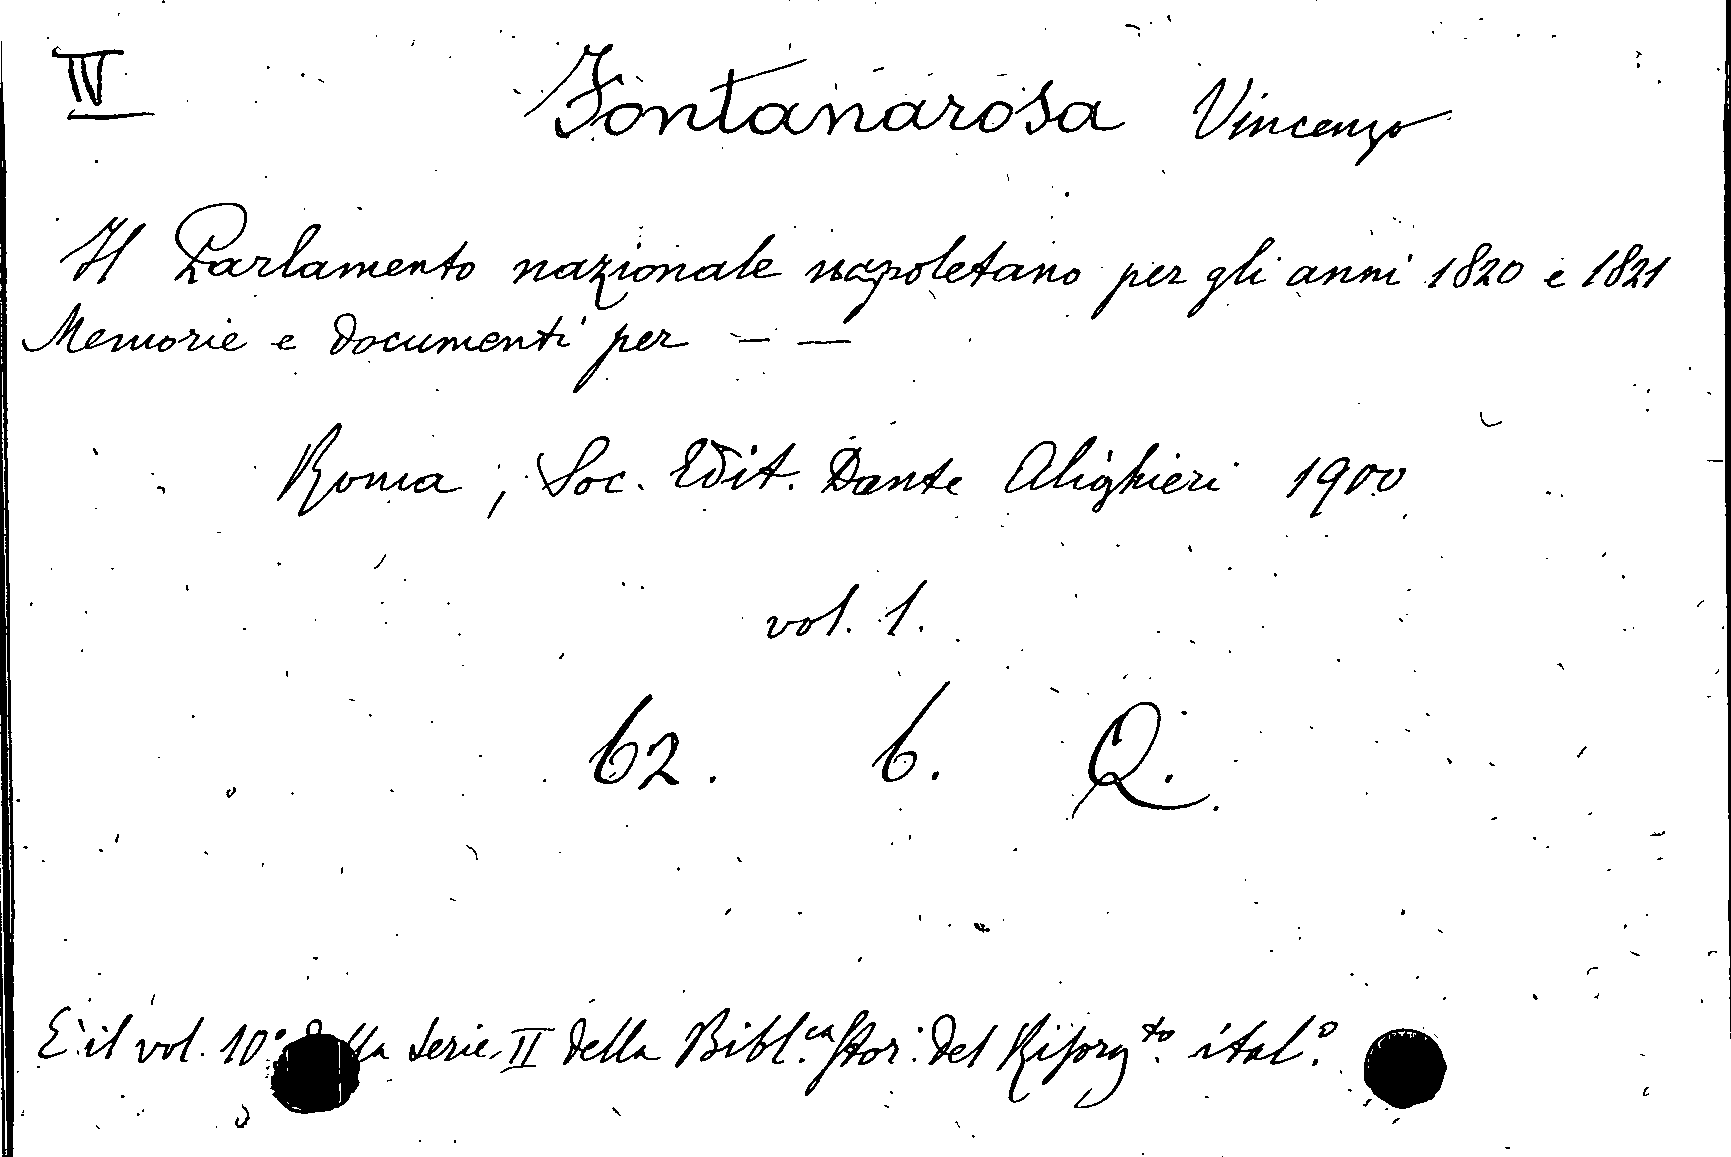 IV
Fontanarosa Vincenzo
Il Parlamento nazionale napoletano per gli anni 1820 e 1821
Memorie e documenti per — —
Roma, Soc. Edit. Dante Alighieri 1900
vol. 1.
62. 6. Q.
E' il vol. 10° della serie II della Bibl.ca Stor. del Risorg.to ital.o